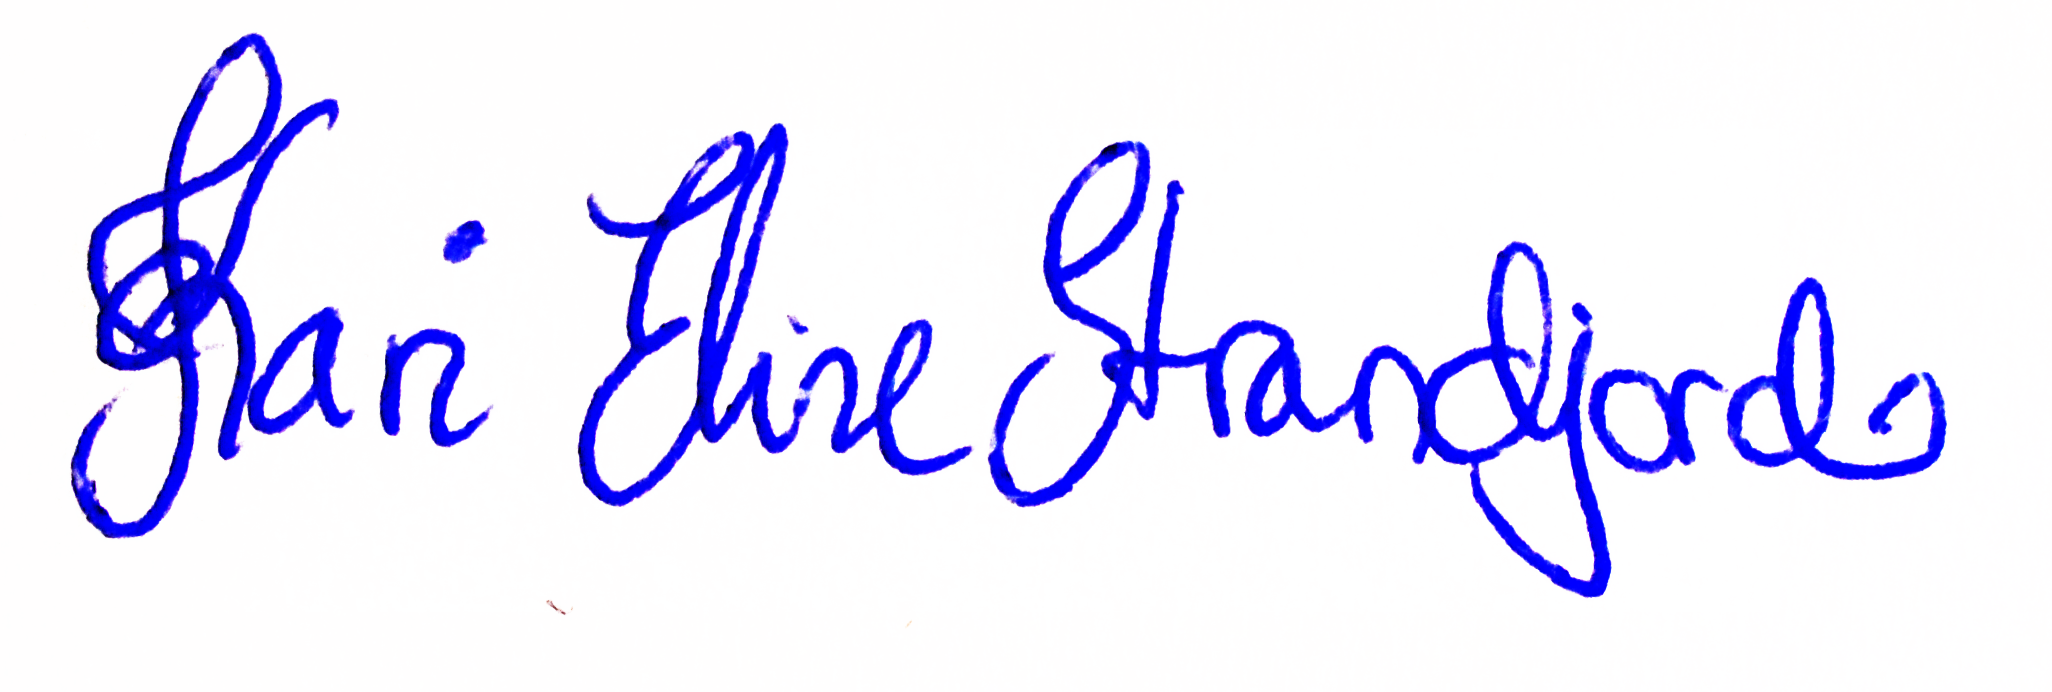 Kari Eline Strandjord